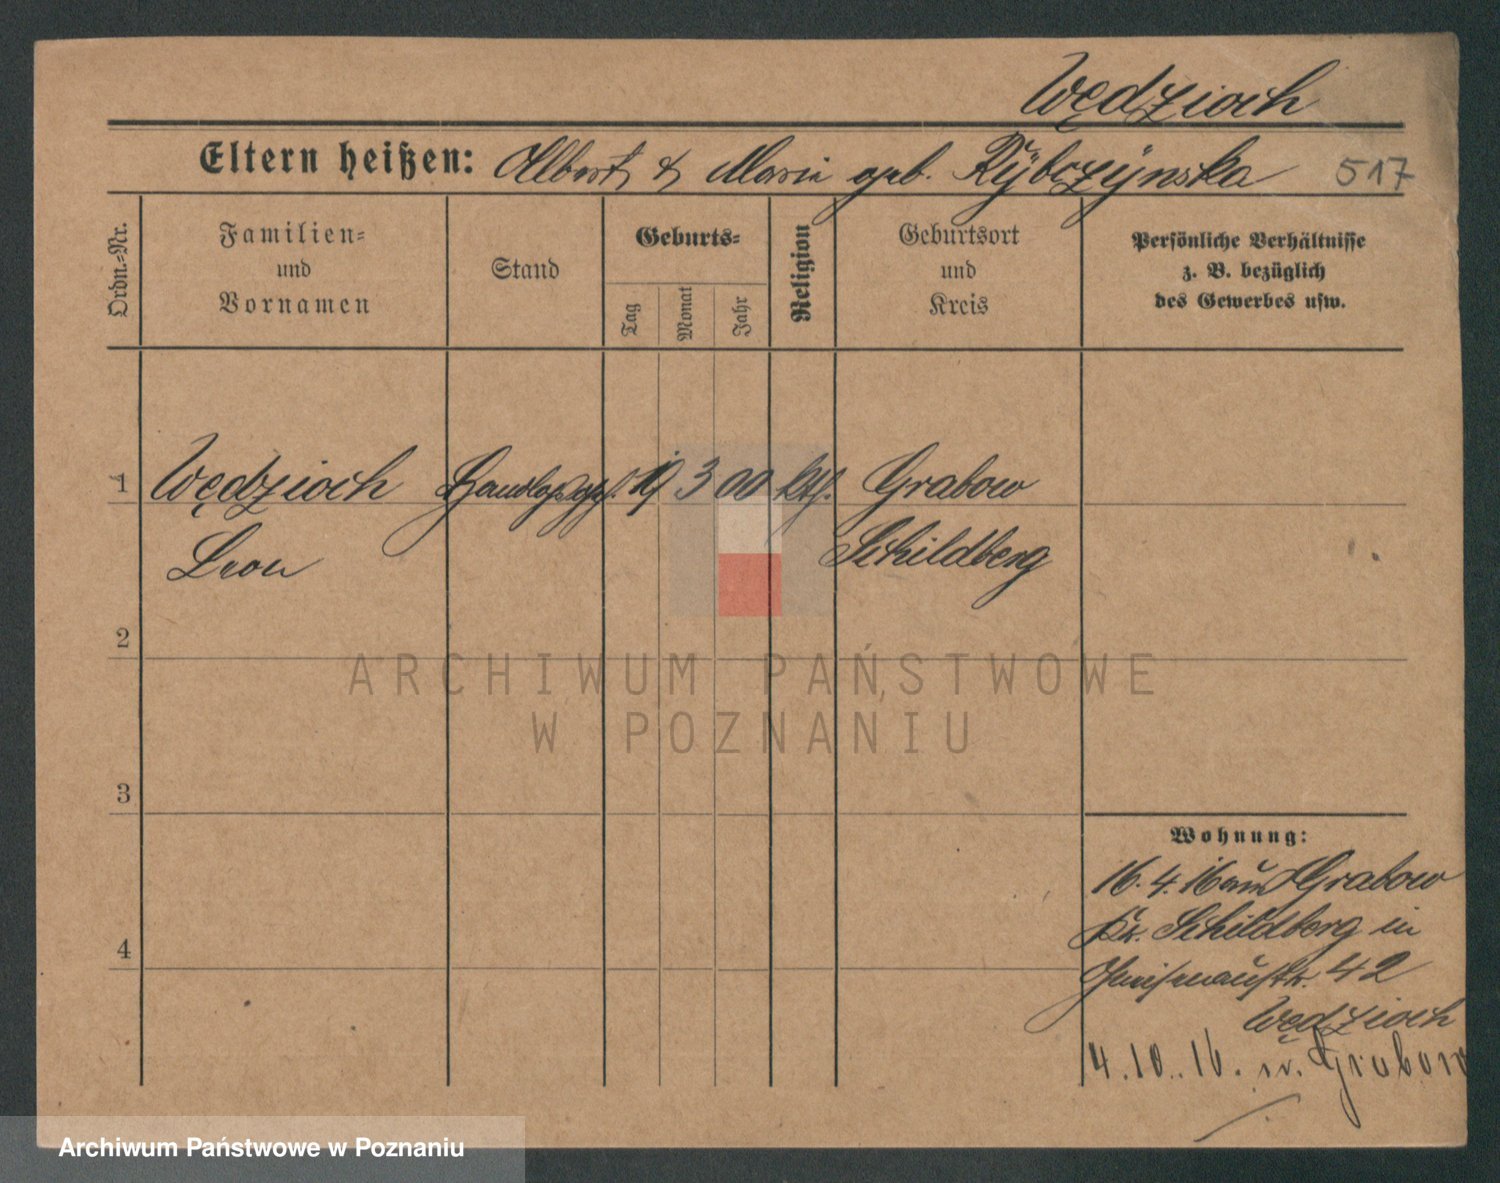 Wędzioch
Eltern heißen: Albert & Marie geb. Rÿbczÿnska 517
Ordn.-Nr.
Familien-
und
Vornamen
Stand
Geburts-
Tag
Monat
Jahr
Religion
Geburtsort
und
Kreis
Persönliche Verhältnisse
z. B. bezüglich
des Gewerbes usw.
1 Wędzioch 19 3 00 kth. Grabow
Leon Schildberg
2
ARCHIWUM PAŃSTWOWE
W POZNANIU
3
Wohnung:
16. 4. 16 aus Grabow
Kr. Schildberg in
4
Gneisenaustr. 42
Wędzioch
4. 10. 16. n. Grabow
Archiwum Państwowe w Poznaniu